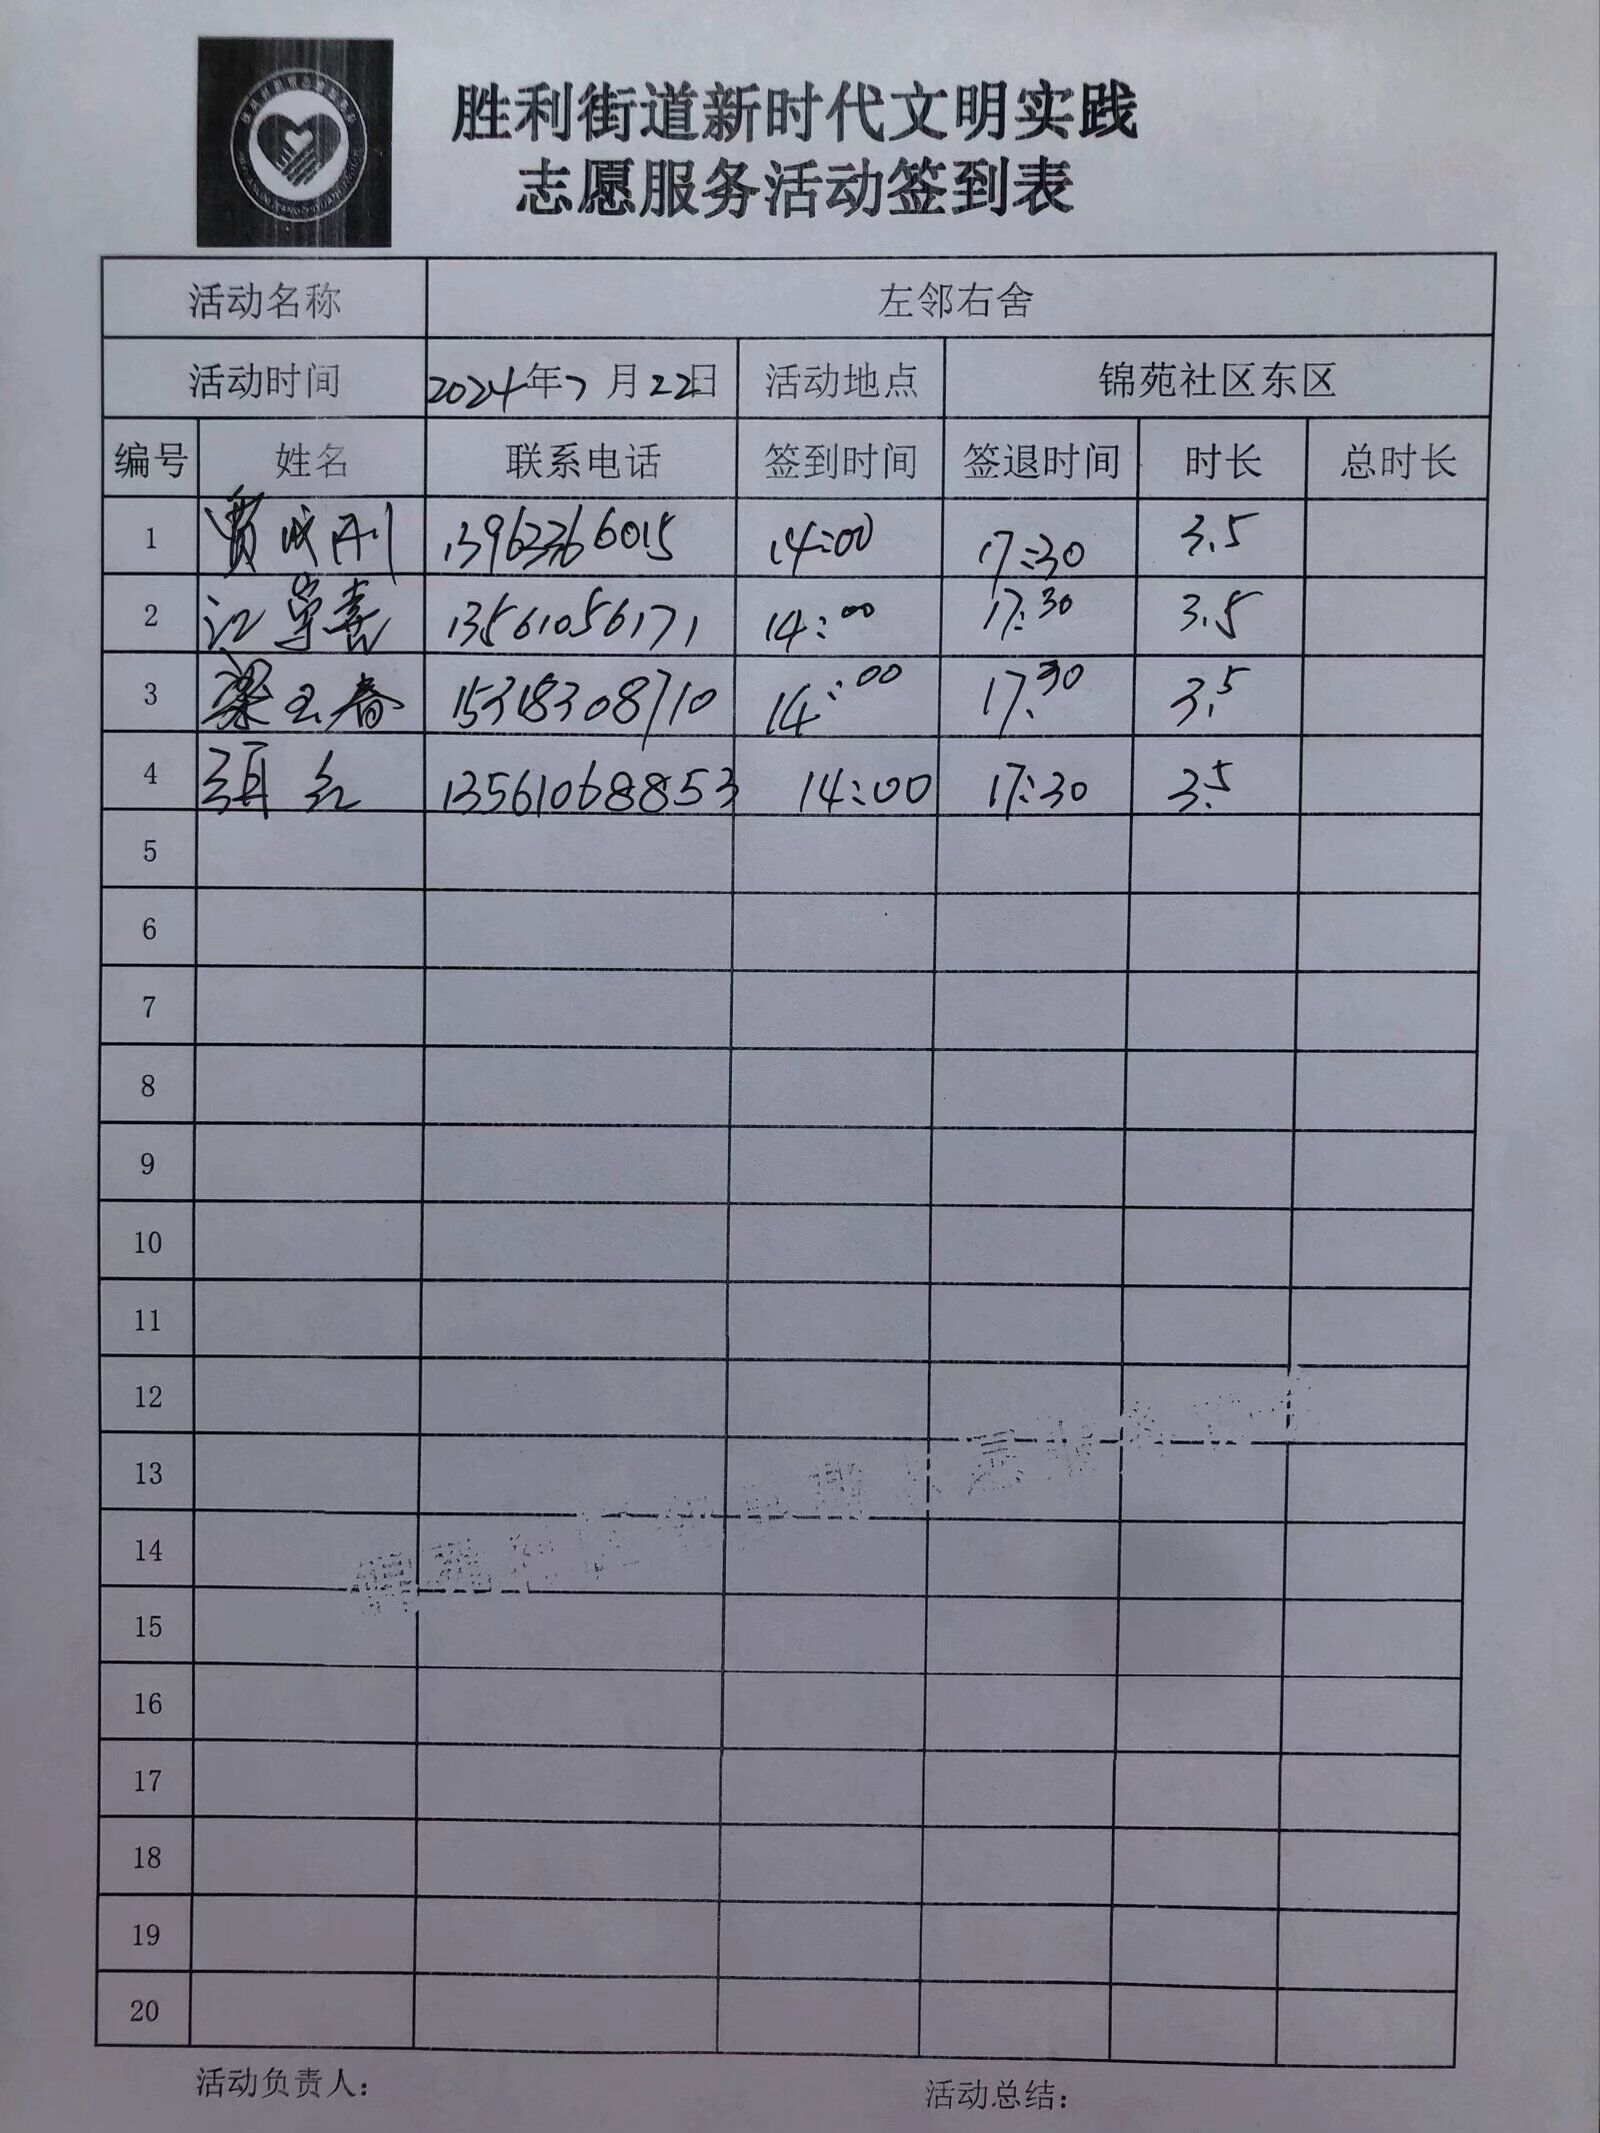 胜利街道新时代文明实践
志愿服务活动签到表
活动名称 左邻右舍
活动时间 2024年7月22日 活动地点 锦苑社区东区
编号 姓名 联系电话 签到时间 签退时间 时长 总时长
1 贾成刚 13963366015 14:00 17:30 3.5
2 江 喜 13561056171 14:00 17:30 3.5
3 梁玉春 15318308710 14:00 17:30 3.5
4 红 13561068853 14:00 17:30 3.5
5
6
7
8
9
10
11
12
13
14
15
16
17
18
19
20
活动负责人：
活动总结：